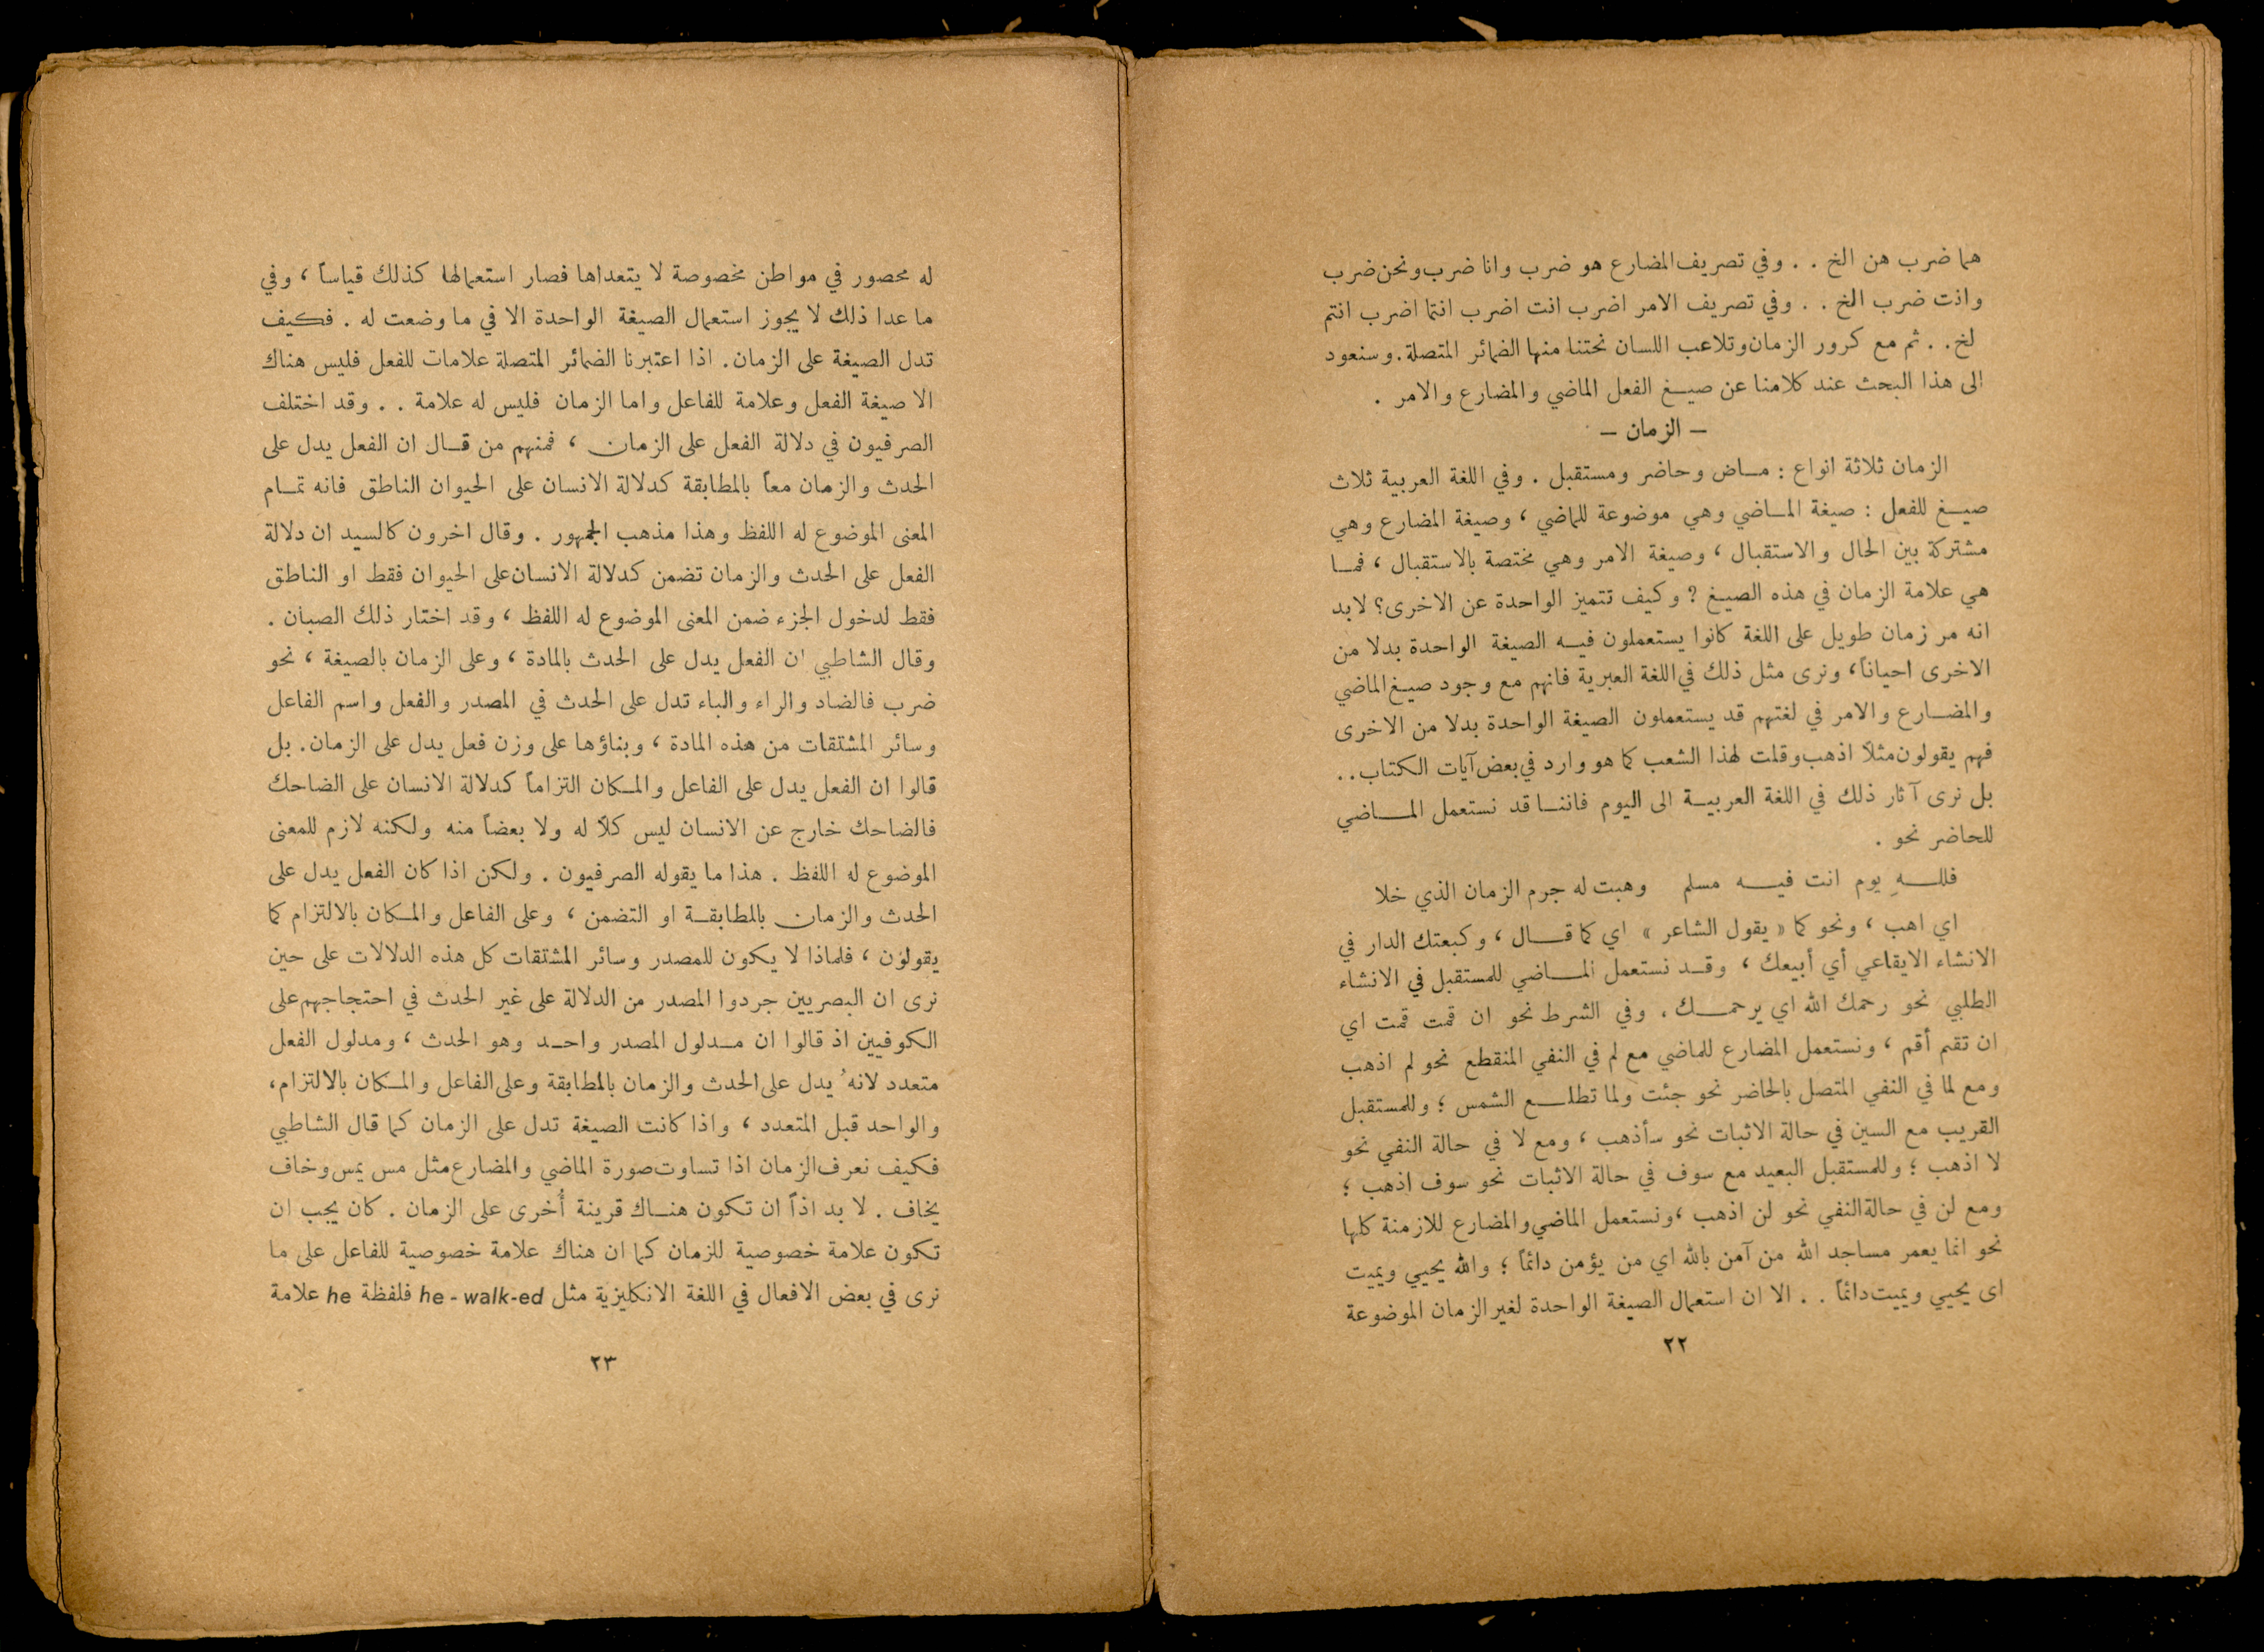 هما ضرب هن الخ . . وفي تصريف المضارع هو ضرب وانا ضرب ونحن ضرب
وانت ضرب الخ . . وفي تصريف الامر اضرب انت اضرب انتما اضرب انتم
لخ. . ثم مع كرور الزمان وتلاعب اللسان نحتنا منها الضمائر المتصلة. وسنعود
الى هذا البحث عند كلامنا عن صيغ الفعل الماضي والمضارع والامر .
— الزمان —
الزمان ثلاثة انواع : مـاض وحاضر ومستقبل . وفي اللغة العربية ثلاث
صيـغ للفعل : صيغة المـاضي وهي موضوعة للماضي ، وصيغة المضارع وهي
مشتركة بين الحال والاستقبال ، وصيغة الامر وهي مختصة بالاستقبال ، فمـا
هي علامة الزمان في هذه الصيـغ ? وكيف تتميز الواحدة عن الاخرى؟ لابد
انه مر زمان طويل على اللغة كانوا يستعملون فيـه الصيغة الواحدة بدلا من
الاخرى احياناً، ونرى مثل ذلك في اللغة العبرية فانهم مع وجود صيغ الماضي
والمضـارع والامر في لغتهم قد يستعملون الصيغة الواحدة بدلا من الاخرى
فهم يقولون مثلاً اذهب وقلت لهذا الشعب كما هو وارد في بعض آيات الكتاب. .
بل نرى آثار ذلك في اللغة العربيـة الى اليوم فاننـا قد نستعمل المـاضي
للحاضر نحو .
فللـهِ يوم انت فيـه مسلم وهبت له جرم الزمان الذي خلا
اي اهب ، ونحو كما « يقول الشاعر » اي كما قـال ، وكبعتك الدار في
الانشاء الايقاعي أي أبيعك ، وقـد نستعمل المـاضي للمستقبل في الانشاء
الطلبي نحو رحمك الله اي يرحمـك . وفي الشرط نحو ان قمت قمت اي
ان تقم أقم ، ونستعمل المضارع للماضي مع لم في النفي المنقطع نحو لم اذهب
ومع لما في النفي المتصل بالحاضر نحو جئت ولما تطلـع الشمس ؛ وللمستقبل
القريب مع السين في حالة الاثبات نحو سأذهب ، ومع لا في حالة النفي نحو
لا اذهب ؛ وللمستقبل البعيد مع سوف في حالة الاثبات نحو سوف اذهب ؛
ومع لن في حالة النفي نحو لن اذهب ، ونستعمل الماضي والمضارع للازمنة كلها
نحو انما يعمر مساجد الله من آمن بالله اي من يؤمن دائماً ؛ والله يحيي ويميت
اى يحيي ويميت دائماً . . الا ان استعمال الصيغة الواحدة لغير الزمان الموضوعة
٢٢
له محصور في مواطن مخصوصة لا يتعداها فصار استعمالها كذلك قياساً ، وفي
ما عدا ذلك لا يجوز استعمال الصيغة الواحدة الا في ما وضعت له . فكيف
تدل الصيغة على الزمان. اذا اعتبرنا الضمائر المتصلة علامات للفعل فليس هناك
الا صيغة الفعل وعلامة للفاعل واما الزمان فليس له علامة . . وقد اختلف
الصرفيون في دلالة الفعل على الزمان ، فمنهم من قـال ان الفعل يدل على
الحدث والزمان معاً بالمطابقة كدلالة الانسان على الحيوان الناطق فانه تمـام
المعنى الموضوع له اللفظ وهذا مذهب الجمهور . وقال اخرون كالسيد ان دلالة
الفعل على الحدث والزمان تضمن كدلالة الانسان على الحيوان فقط او الناطق
فقط لدخول الجزء ضمن المعنى الموضوع له اللفظ ، وقد اختار ذلك الصبان .
وقال الشاطبي ان الفعل يدل على الحدث بالمادة ، وعلى الزمان بالصيغة ، نحو
ضرب فالضاد والراء والباء تدل على الحدث في المصدر والفعل واسم الفاعل
وسائر المشتقات من هذه المادة ، وبناؤها على وزن فعل يدل على الزمان. بل
قالوا ان الفعل يدل على الفاعل والمكان التزاماً كدلالة الانسان على الضاحك
فالضاحك خارج عن الانسان ليس كلاً له ولا بعضاً منه ولكنه لازم للمعنى
الموضوع له اللفظ . هذا ما يقوله الصرفيون . ولكن اذا كان الفعل يدل على
الحدث والزمان بالمطابقـة او التضمن ، وعلى الفاعل والمكان بالالتزام كما
يقولون ، فلماذا لا يكون للمصدر وسائر المشتقات كل هذه الدلالات على حين
نرى ان البصريين جردوا المصدر من الدلالة على غير الحدث في احتجاجهم على
الكوفيين اذ قالوا ان مـدلول المصدر واحـد وهو الحدث ، ومدلول الفعل
متعدد لانهُ يدل على الحدث والزمان بالمطابقة وعلى الفاعل والمكان بالالتزام،
والواحد قبل المتعدد ، واذا كانت الصيغة تدل على الزمان كما قال الشاطبي
فكيف نعرف الزمان اذا تساوت صورة الماضي والمضارع مثل مس يمس وخاف
يخاف . لا بد اذاً ان تكون هنـاك قرينة أُخرى على الزمان . كان يجب ان
تكون علامة خصوصية للزمان كما ان هناك علامة خصوصية للفاعل على ما
نرى في بعض الافعال في اللغة الانكليزية مثل he - walk-ed فلفظة he علامة
٢٣